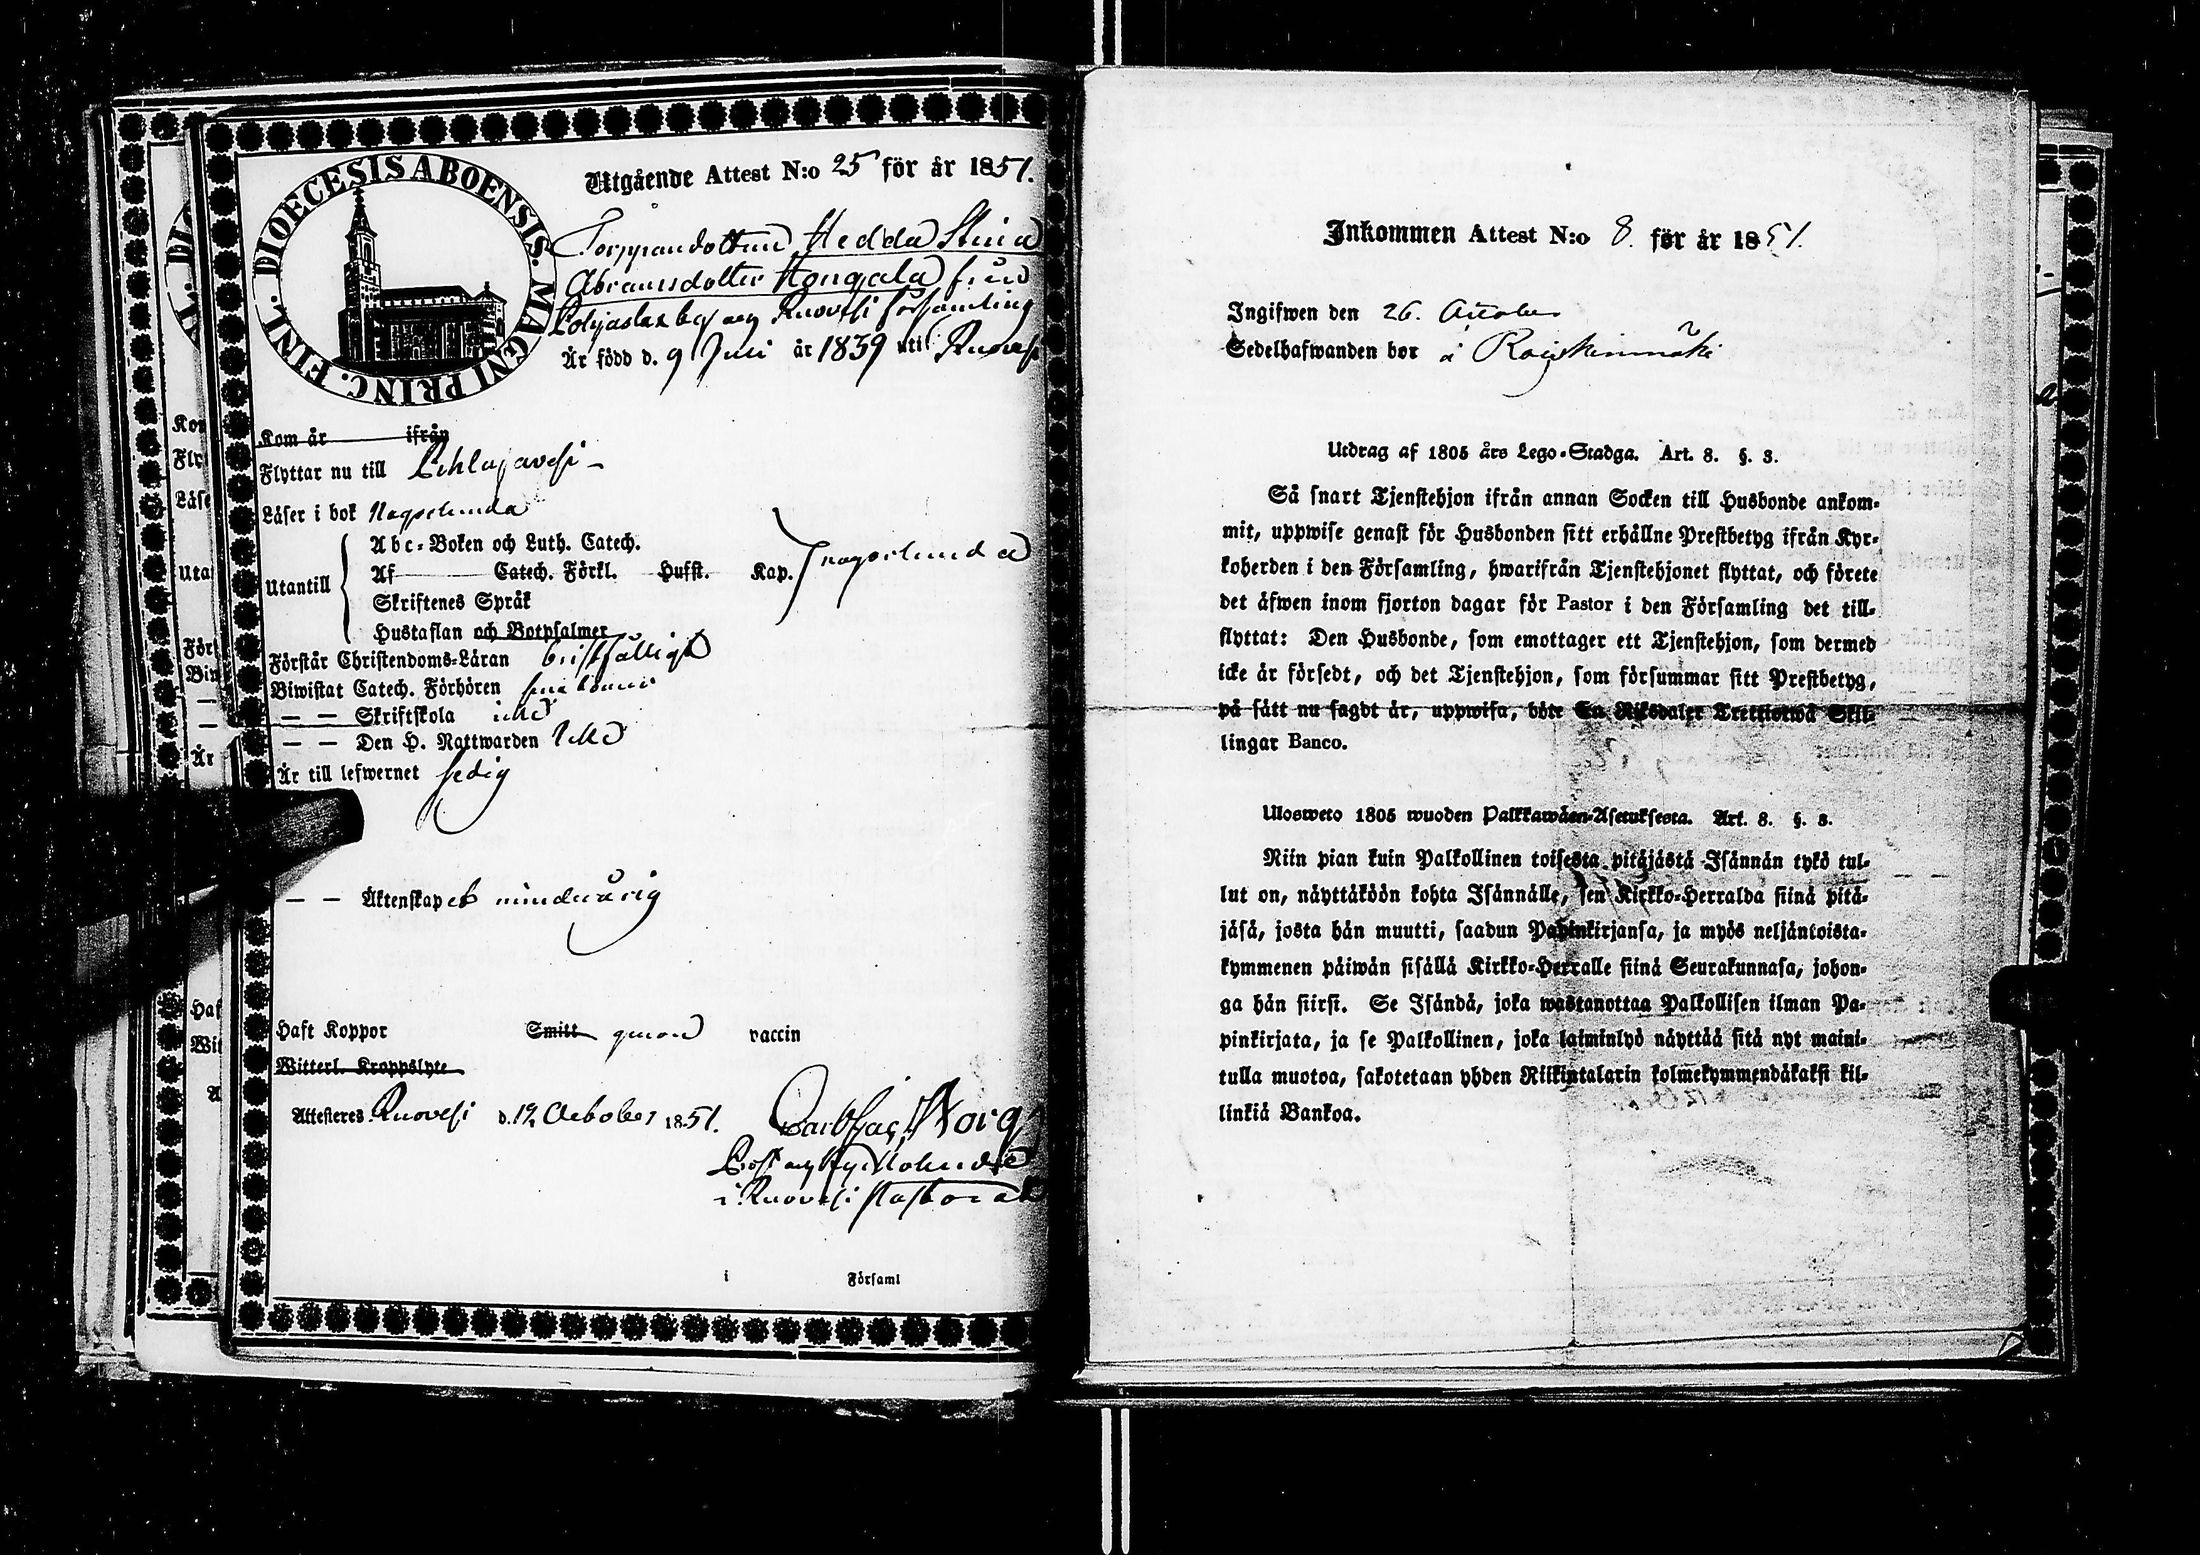 DIOECESIS ABOENSIS. MAGNI PRINC. FINL.
Utgående Attest N:o 25 för år 1851.
Torppandottren Hedda Stina
Abramsdotter Hongala från
Pohjaslax by och Ruovesi församling
Är född d. 9 Juli år 1839 uti Ruovesi
Kom år ifrån
Flyttar nu till Pihlajavesi
Läser i bok Någorlunda
Utantill
Abc-Boken och Luth. Catech.
Af Catech. Förkl. Husst. Kap. någorlunda
Skriftenes Språk
Hustaflan och Botpsalmer
Förstår Christendoms-Läran bristfälligt
Biwistat Catech. Förhören
— — Skriftskola icke
— — Den H. Nattwarden Icke
Är till lefwernet ledig
— — Äktenskapet minderårig
Haft Koppor Smitt genom vaccin
Witterl. Kroppslyte
Attesteras Ruovesi d. 12 October 1851.
Carl Borg
Prost och Kyrkoherde
i Ruovesi Pastorat
i Församl
Inkommen Attest N:o 8. för år 1851.
Ingifwen den 26. October
Sedelhafwanden bor å Raiskinmäki
Utdrag af 1805 års Lego-Stadga. Art. 8. §. 3.
Så snart Tjenstehjon ifrån annan Socken till Husbonde ankom-
mit, uppwise genast för Husbonden sitt erhållne Prestbetyg ifrån Kyr-
koherden i den Församling, hwarifrån Tjenstehjonet flyttat, och förete
det äfwen inom fjorton dagar för Pastor i den Församling det till-
flyttat: Den Husbonde, som emottager ett Tjenstehjon, som dermed
icke är försedt, och det Tjenstehjon, som försummar sitt Prestbetyg,
på sätt nu sagdt är, uppwisa, böte En Riksdaler Trettiotwå Skil-
lingar Banco.
Ulosweto 1805 wuoden Palkkawäen-Asetuksesta. Art. 8. §. 3.
Niin pian kuin Palkollinen toisesta pitäjästä Isännän tykö tul-
lut on, näyttäköön kohta Isännälle, sen Kirkko-Herralda siinä pitä-
jäsä, josta hän muutti, saadun Papinkirjansa, ja myös neljäntoista-
kymmenen päiwän sisällä Kirkko-Herralle siinä Seurakunnasa, johon-
ga hän siirsi. Se Isändä, joka wastanottaa Palkollisen ilman Pa-
pinkirjata, ja se Palkollinen, joka laiminlyö näyttää sitä nyt maini-
tulla muotoa, sakotetaan yhden Riikintalarin kolmekymmendäkaksi kil-
linkiä Bankoa.